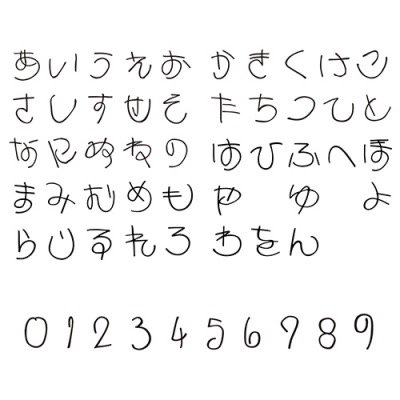 あいうえお かきくけこ
さしすせそ たちつてと
なにぬねの はひふへほ
まみむめも や ゆ よ
らりるれろ わをん
0 1 2 3 4 5 6 7 8 9